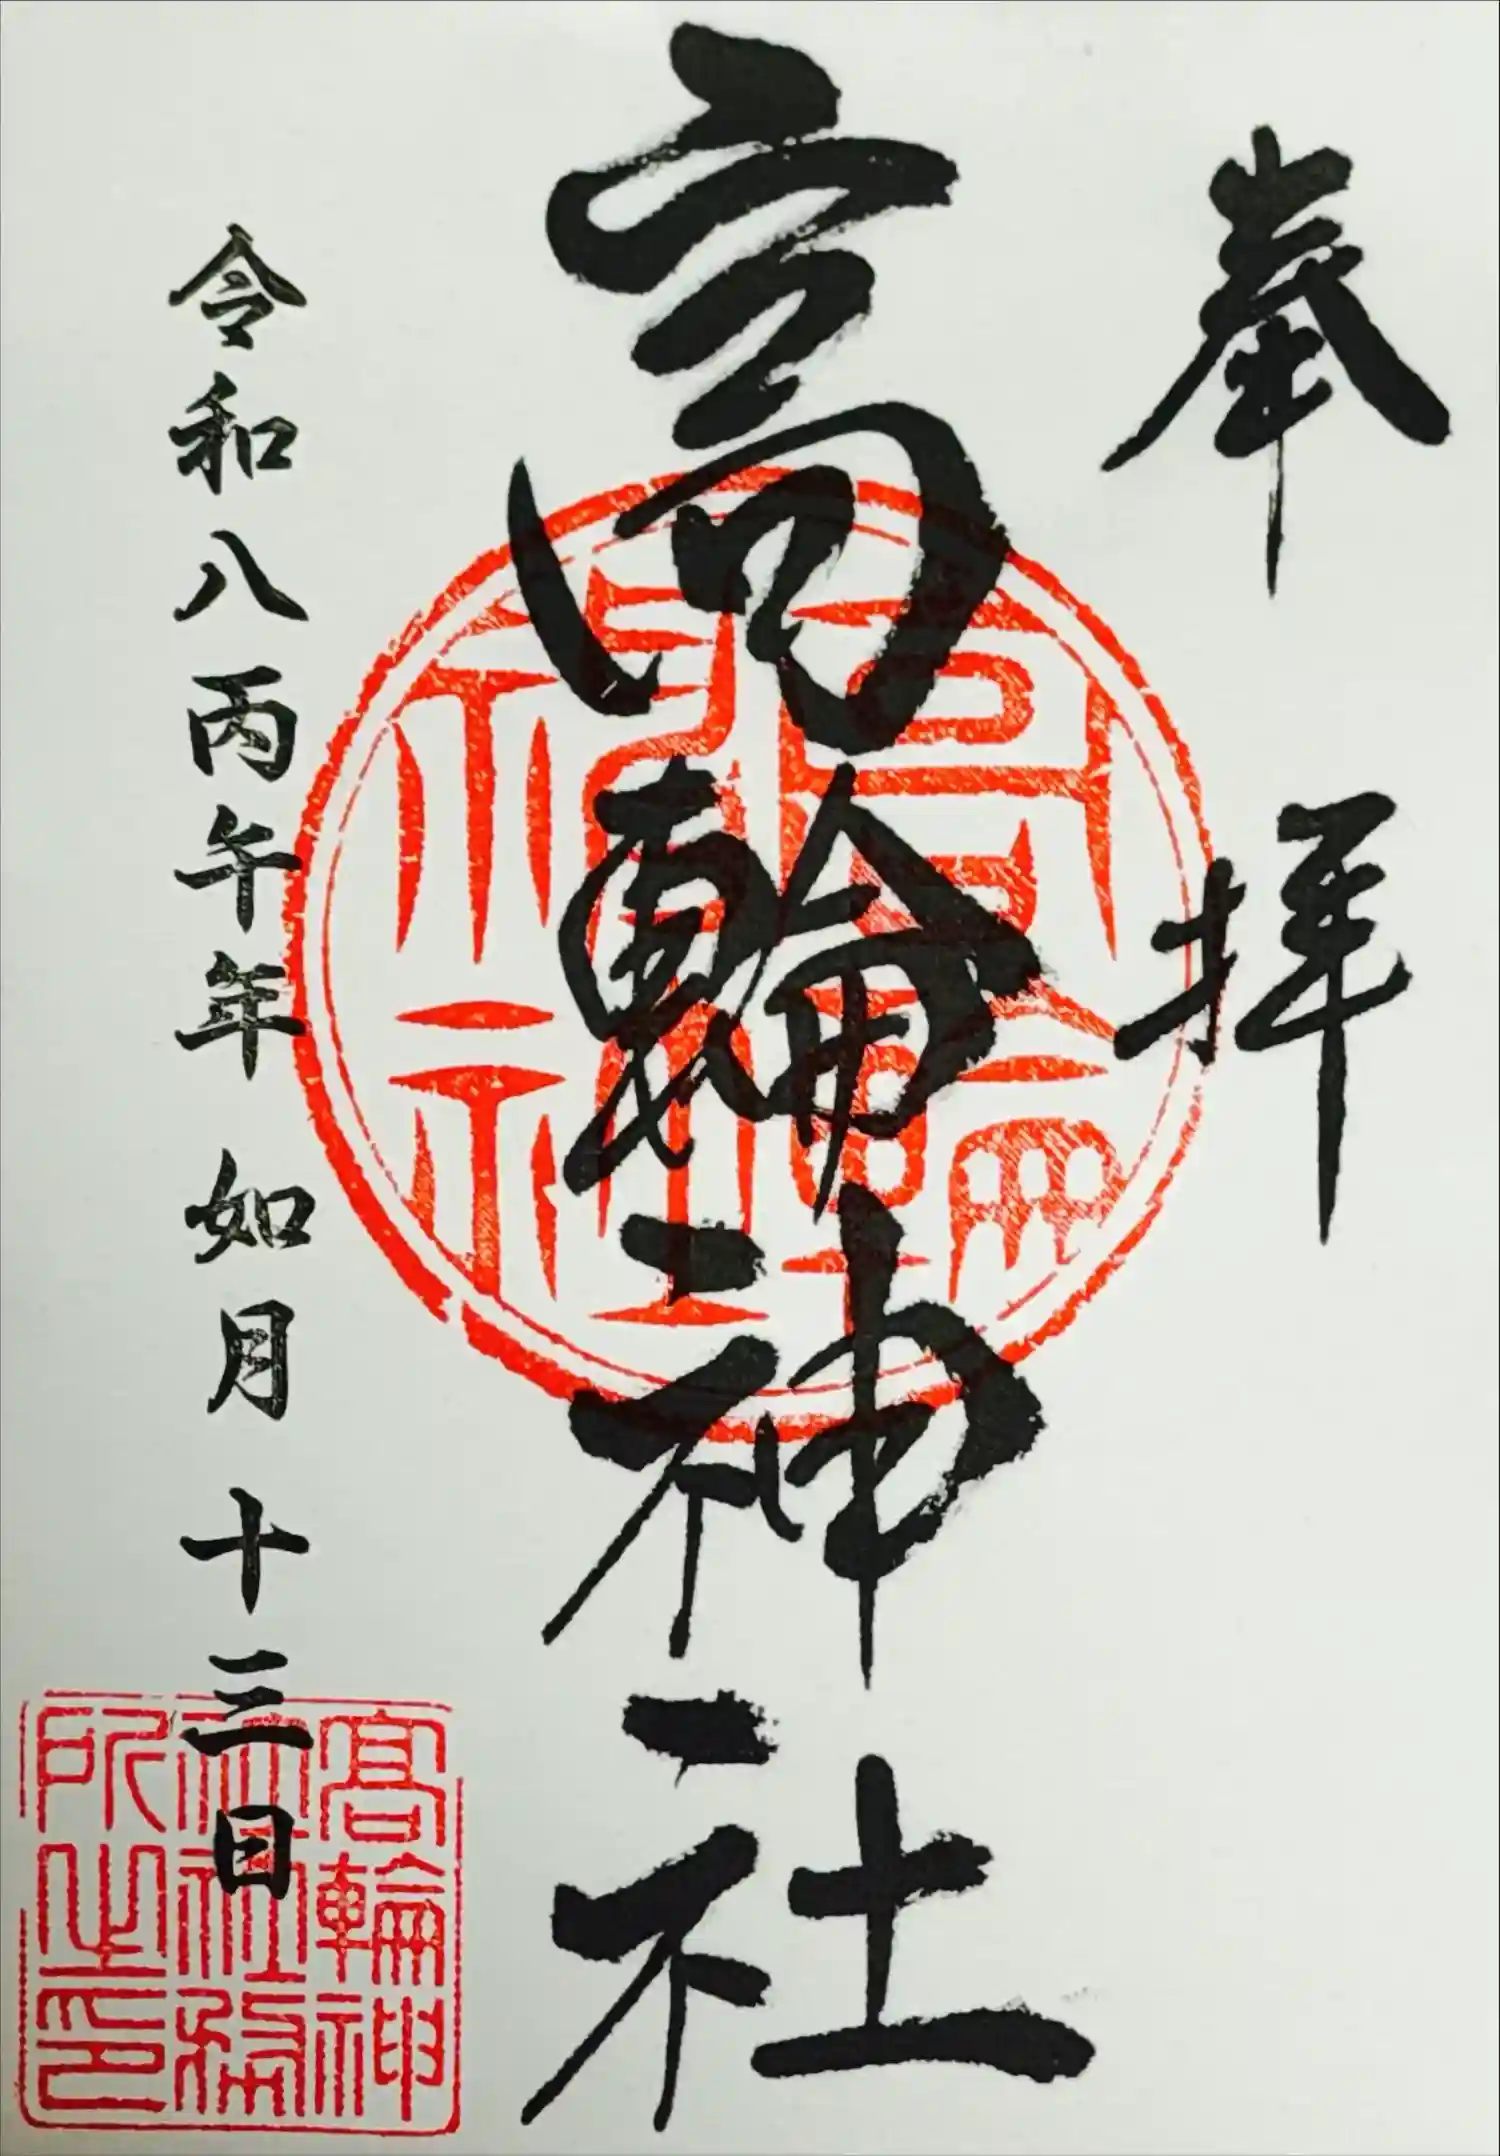 奉拝
高輪神社
令和八丙午年 如月 十三日
高輪神社
高輪神社社務所之印